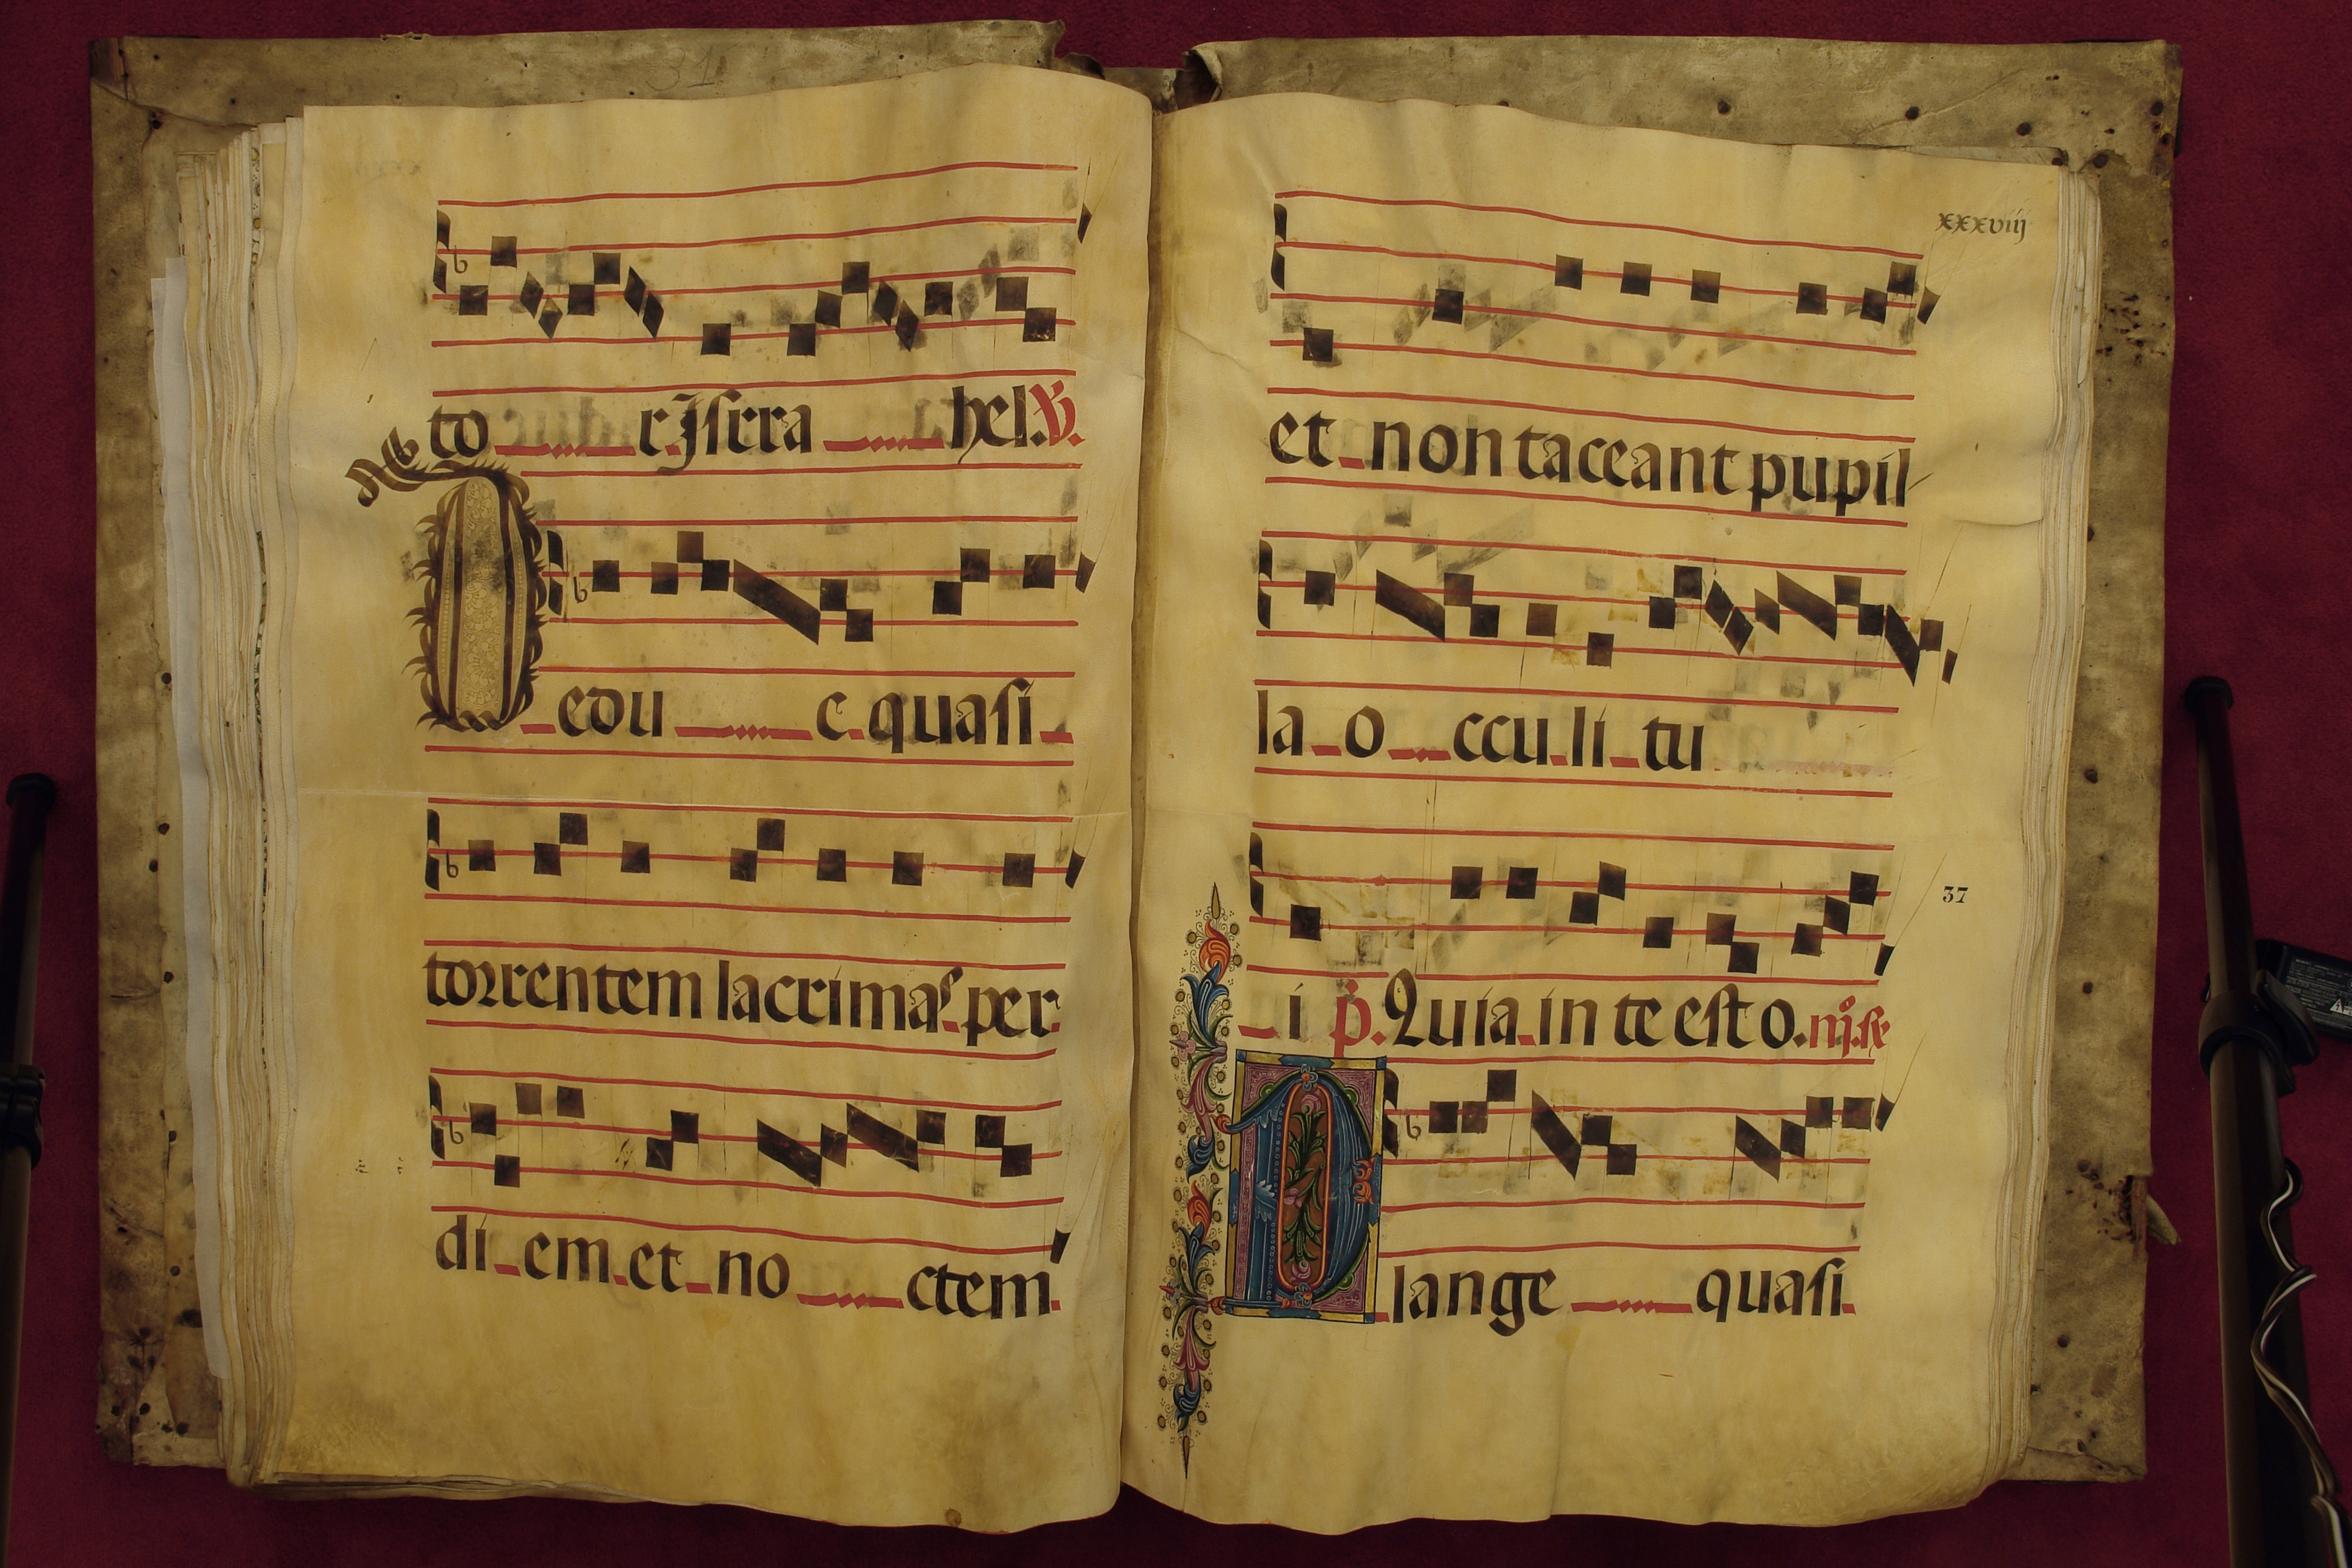 31
to r Isrra hel. V.
Dedu c quasi
torrentem lacrimas per
di em et no ctem
xxxviij
et non taceant pupil
la o cculi tu
37
i p. Quia in te est o.
Plange quasi